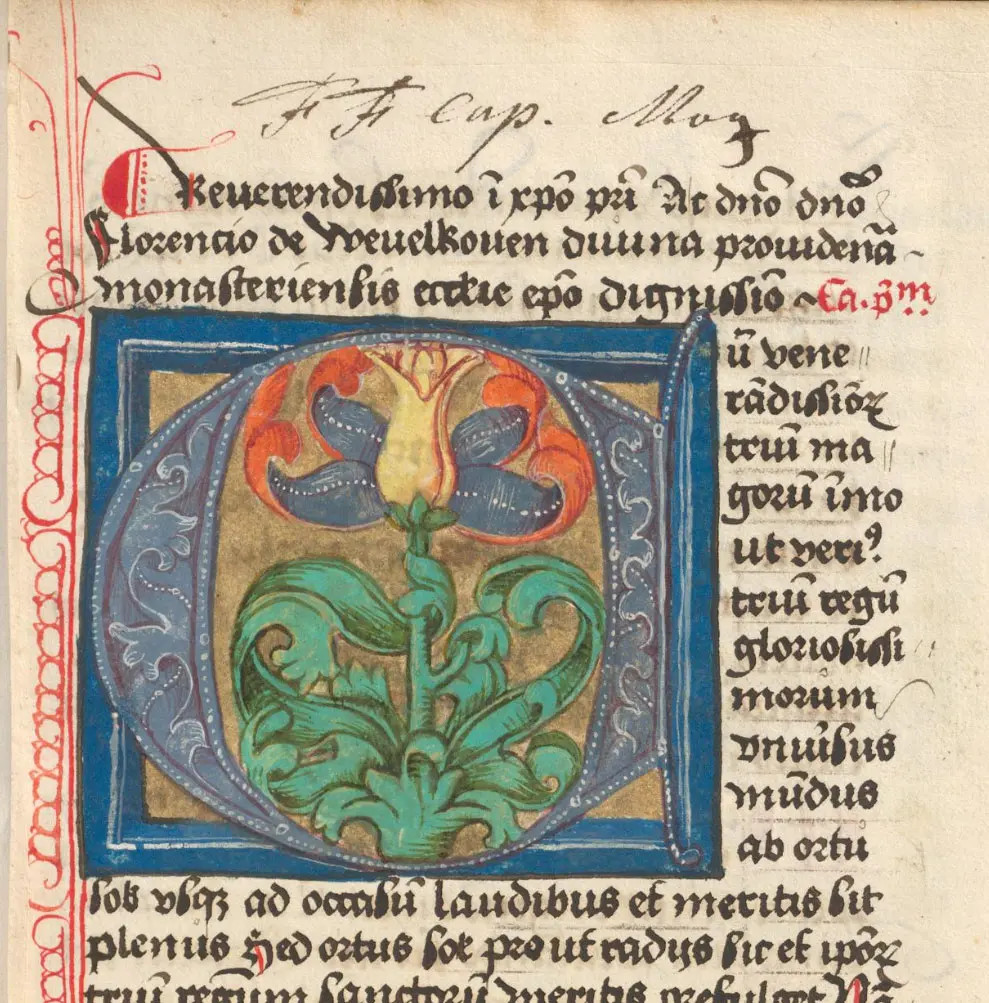 FF Cap. Mog
Reuerendissimo ī xpō pr̄i Ac dn̄o dn̄o
Florencio de Weuelkouen diuina prouidenā
monasteriensis eccl̄ie ep̄o dignissīo Ca. p̄m
Cū vene
rādissiōꝝ
triū ma
gorū īmo
ut veriꝰ
triū regū
gloriosissi
morum
vniūsus
mūdus
ab ortu
solis vsqꝫ ad occasū laudibus et meritis sit
plenus Sed ortus sol prout radijs sic et ip̄oꝝ
triū regum sanctorū meritis prefulget